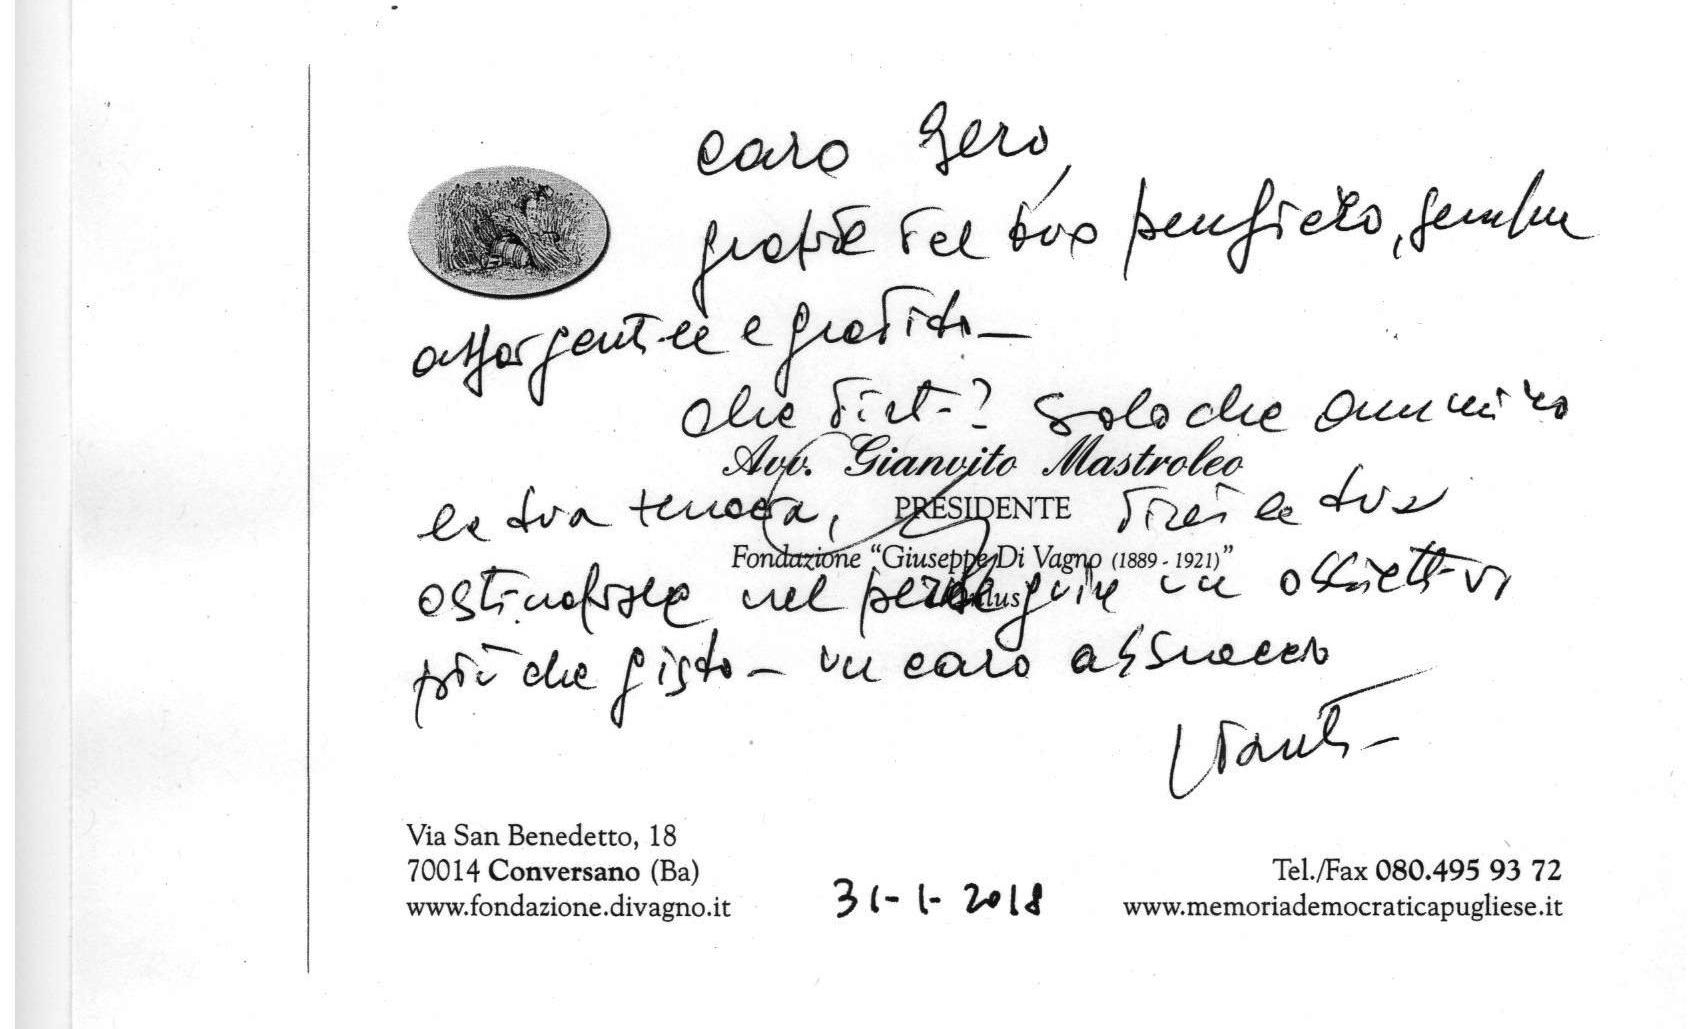 caro Gero,
grazie del tuo pensiero, sempre
e gradito_
che dirti? Solo che ammiro
Avv. Gianvito Mastroleo
la tua tenacia, direi la tua
PRESIDENTE
Fondazione “Giuseppe Di Vagno (1889 - 1921)”
ostinazione nel perseguire un obbiettivo
più che gisto_ un caro abbraccio
Via San Benedetto, 18
70014 Conversano (Ba)
www.fondazione.divagno.it
31-1-2018
Tel./Fax 080.495 93 72
www.memoriademocraticapugliese.it